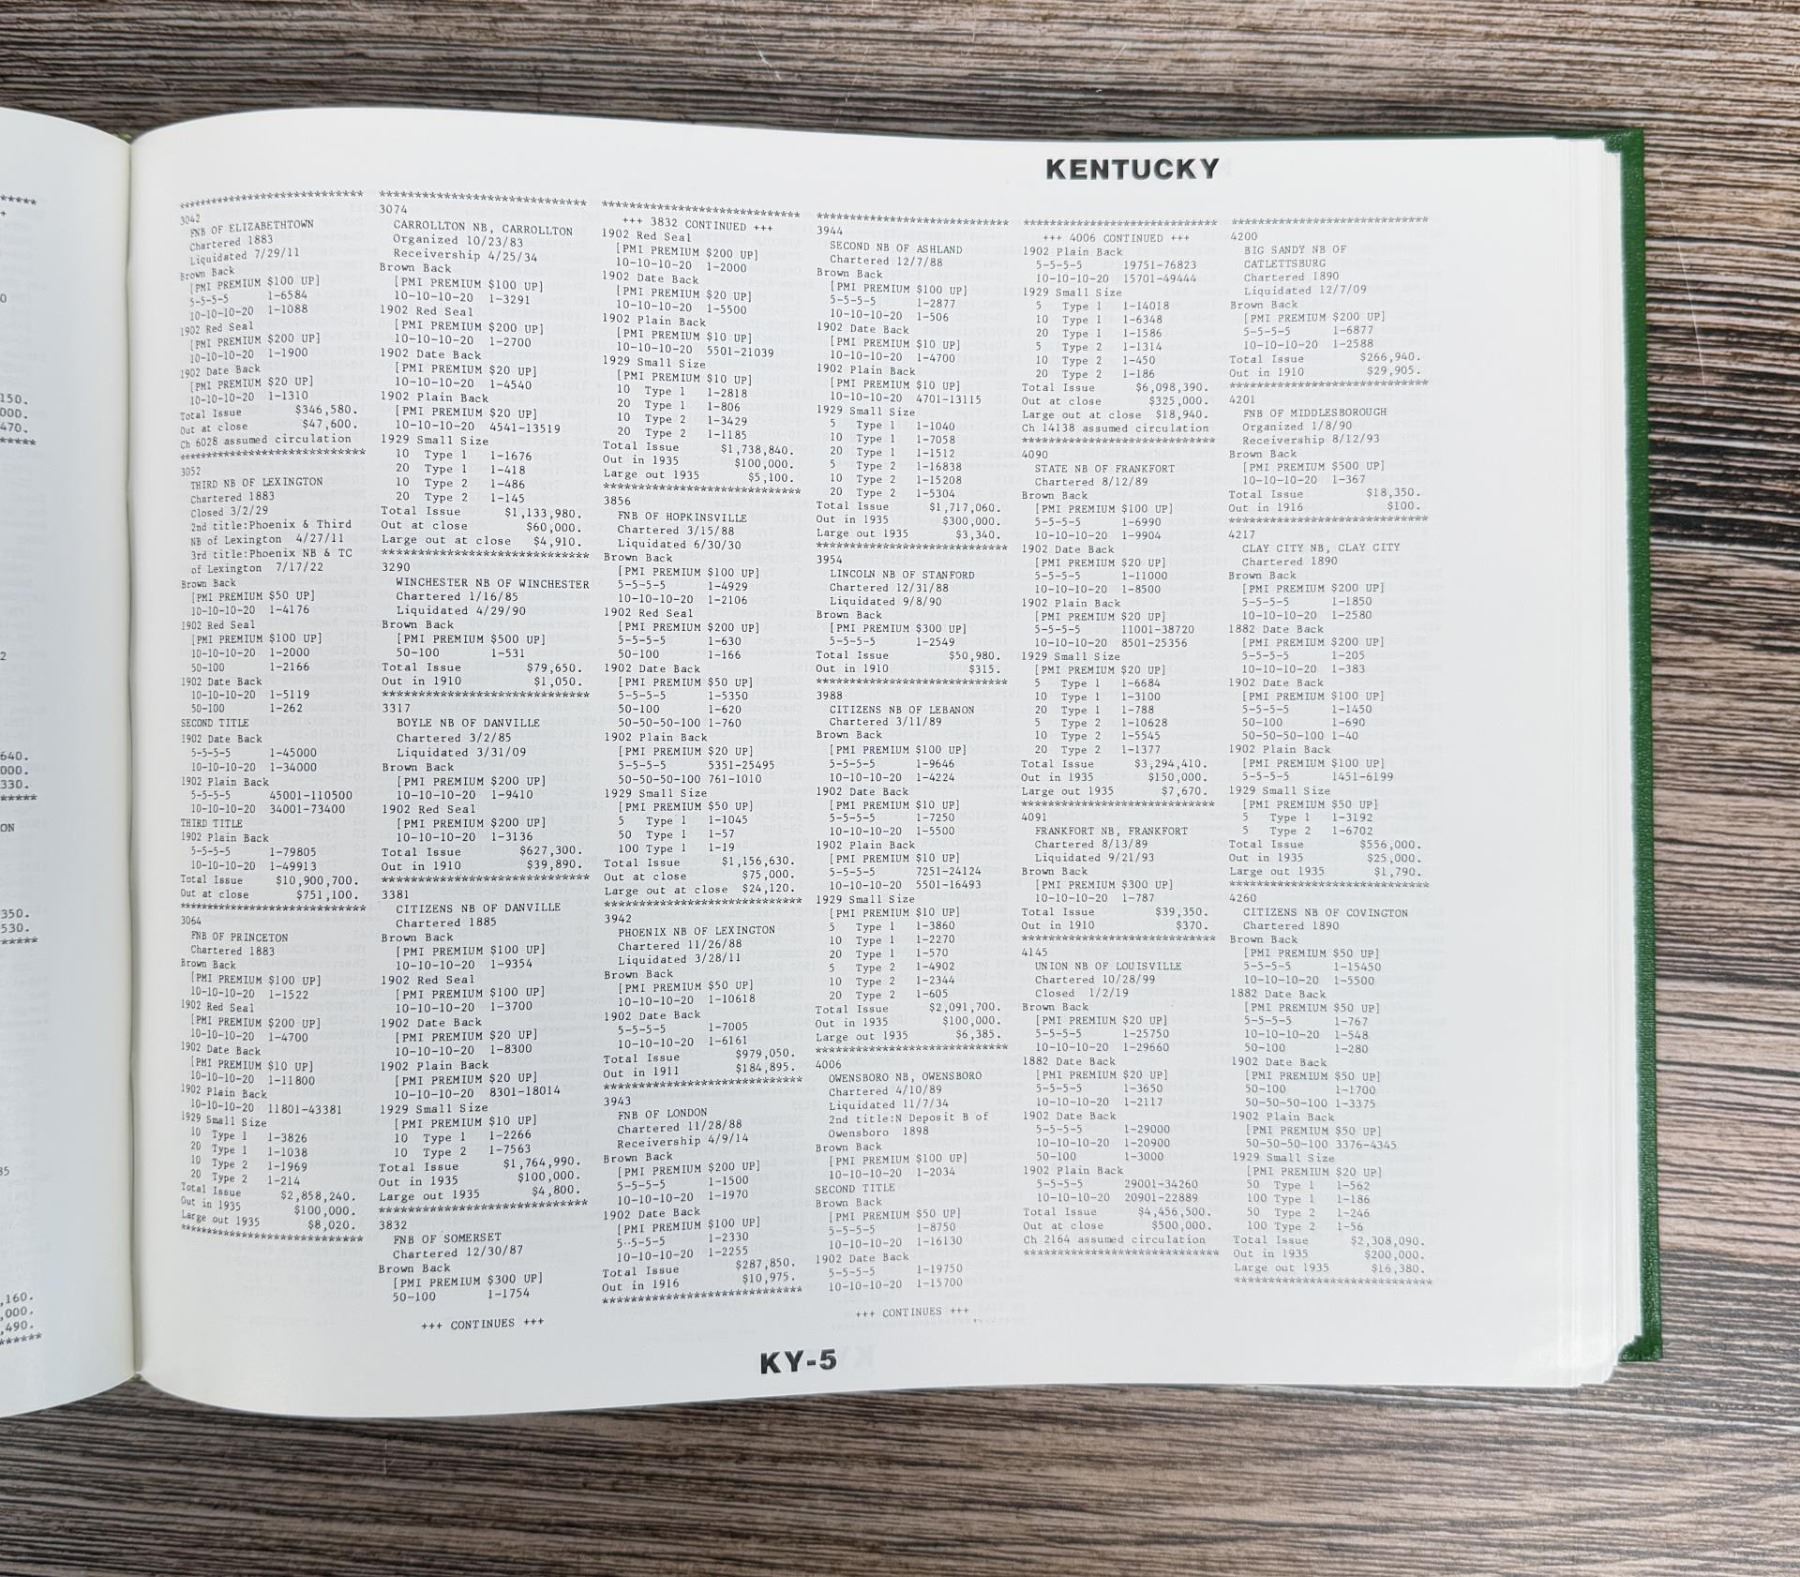 KENTUCKY
3042
FNB OF ELIZABETHTOWN
Chartered 1883
Liquidated 7/29/11
Brown Back
[PMI PREMIUM $100 UP]
5-5-5-5 1-6584
10-10-10-20 1-1088
1902 Red Seal
[PMI PREMIUM $200 UP]
10-10-10-20 1-1900
1902 Date Back
[PMI PREMIUM $20 UP]
10-10-10-20 1-1310
Total Issue $346,580.
Out at close $47,600.
Ch 6028 assumed circulation
******************************
3052
THIRD NB OF LEXINGTON
Chartered 1883
Closed 3/2/29
2nd title:Phoenix & Third
NB of Lexington 4/27/11
3rd title:Phoenix NB & TC
of Lexington 7/17/22
Brown Back
[PMI PREMIUM $50 UP]
10-10-10-20 1-4176
1902 Red Seal
[PMI PREMIUM $100 UP]
10-10-10-20 1-2000
50-100 1-2166
1902 Date Back
10-10-10-20 1-5119
50-100 1-262
SECOND TITLE
1902 Date Back
5-5-5-5 1-45000
10-10-10-20 1-34000
1902 Plain Back
5-5-5-5 45001-110500
10-10-10-20 34001-73400
THIRD TITLE
1902 Plain Back
5-5-5-5 1-79805
10-10-10-20 1-49913
Total Issue $10,900,700.
Out at close $751,100.
******************************
3064
FNB OF PRINCETON
Chartered 1883
Brown Back
[PMI PREMIUM $100 UP]
10-10-10-20 1-1522
1902 Red Seal
[PMI PREMIUM $200 UP]
10-10-10-20 1-4700
1902 Date Back
[PMI PREMIUM $10 UP]
10-10-10-20 1-11800
1902 Plain Back
10-10-10-20 11801-43381
1929 Small Size
10 Type 1 1-3826
20 Type 1 1-1038
10 Type 2 1-1969
20 Type 2 1-214
Total Issue $2,858,240.
Out in 1935 $100,000.
Large out 1935 $8,020.
******************************
3074
CARROLLTON NB, CARROLLTON
Organized 10/23/83
Receivership 4/25/34
Brown Back
[PMI PREMIUM $100 UP]
10-10-10-20 1-3291
1902 Red Seal
[PMI PREMIUM $200 UP]
10-10-10-20 1-2700
1902 Date Back
[PMI PREMIUM $20 UP]
10-10-10-20 1-4540
1902 Plain Back
[PMI PREMIUM $20 UP]
10-10-10-20 4541-13519
1929 Small Size
10 Type 1 1-1676
20 Type 1 1-418
10 Type 2 1-486
20 Type 2 1-145
Total Issue $1,133,980.
Out at close $60,000.
Large out at close $4,910.
******************************
3290
WINCHESTER NB OF WINCHESTER
Chartered 1/16/85
Liquidated 4/29/90
Brown Back
[PMI PREMIUM $500 UP]
50-100 1-531
Total Issue $79,650.
Out in 1910 $1,050.
******************************
3317
BOYLE NB OF DANVILLE
Chartered 3/2/85
Liquidated 3/31/09
Brown Back
[PMI PREMIUM $200 UP]
10-10-10-20 1-9410
1902 Red Seal
[PMI PREMIUM $200 UP]
10-10-10-20 1-3136
Total Issue $627,300.
Out in 1910 $39,890.
******************************
3381
CITIZENS NB OF DANVILLE
Chartered 1885
Brown Back
[PMI PREMIUM $100 UP]
10-10-10-20 1-9354
1902 Red Seal
[PMI PREMIUM $100 UP]
10-10-10-20 1-3700
1902 Date Back
[PMI PREMIUM $20 UP]
10-10-10-20 1-8300
1902 Plain Back
[PMI PREMIUM $20 UP]
10-10-10-20 8301-18014
1929 Small Size
[PMI PREMIUM $10 UP]
10 Type 1 1-2266
10 Type 2 1-7563
Total Issue $1,764,990.
Out in 1935 $100,000.
Large out 1935 $4,800.
******************************
3832
FNB OF SOMERSET
Chartered 12/30/87
Brown Back
[PMI PREMIUM $300 UP]
50-100 1-1754
+++ CONTINUES +++
+++ 3832 CONTINUED +++
1902 Red Seal
[PMI PREMIUM $200 UP]
10-10-10-20 1-2000
1902 Date Back
[PMI PREMIUM $20 UP]
10-10-10-20 1-5500
1902 Plain Back
[PMI PREMIUM $10 UP]
10-10-10-20 5501-21039
1929 Small Size
[PMI PREMIUM $10 UP]
10 Type 1 1-2818
20 Type 1 1-806
10 Type 2 1-3429
20 Type 2 1-1185
Total Issue $1,738,840.
Out in 1935 $100,000.
Large out 1935 $5,100.
******************************
3856
FNB OF HOPKINSVILLE
Chartered 3/15/88
Liquidated 6/30/30
Brown Back
[PMI PREMIUM $100 UP]
5-5-5-5 1-4929
10-10-10-20 1-2106
1902 Red Seal
[PMI PREMIUM $200 UP]
5-5-5-5 1-630
50-100 1-166
1902 Date Back
[PMI PREMIUM $50 UP]
5-5-5-5 1-5350
50-100 1-620
50-50-50-100 1-760
1902 Plain Back
[PMI PREMIUM $20 UP]
5-5-5-5 5351-25495
50-50-50-100 761-1010
1929 Small Size
[PMI PREMIUM $50 UP]
5 Type 1 1-1045
50 Type 1 1-57
100 Type 1 1-19
Total Issue $1,156,630.
Out at close $75,000.
Large out at close $24,120.
******************************
3942
PHOENIX NB OF LEXINGTON
Chartered 11/26/88
Liquidated 3/28/11
Brown Back
[PMI PREMIUM $50 UP]
10-10-10-20 1-10618
1902 Date Back
5-5-5-5 1-7005
10-10-10-20 1-6161
Total Issue $979,050.
Out in 1911 $184,895.
******************************
3943
FNB OF LONDON
Chartered 11/28/88
Receivership 4/9/14
Brown Back
[PMI PREMIUM $200 UP]
5-5-5-5 1-1500
10-10-10-20 1-1970
1902 Date Back
[PMI PREMIUM $100 UP]
5-5-5-5 1-2330
10-10-10-20 1-2255
Total Issue $287,850.
Out in 1916 $10,975.
******************************
3944
SECOND NB OF ASHLAND
Chartered 12/7/88
Brown Back
[PMI PREMIUM $100 UP]
5-5-5-5 1-2877
10-10-10-20 1-506
1902 Date Back
[PMI PREMIUM $10 UP]
10-10-10-20 1-4700
1902 Plain Back
[PMI PREMIUM $10 UP]
10-10-10-20 4701-13115
1929 Small Size
5 Type 1 1-1040
10 Type 1 1-7058
20 Type 1 1-1512
5 Type 2 1-16838
10 Type 2 1-15208
20 Type 2 1-5304
Total Issue $1,717,060.
Out in 1935 $300,000.
Large out 1935 $3,340.
******************************
3954
LINCOLN NB OF STANFORD
Chartered 12/31/88
Liquidated 9/8/90
Brown Back
[PMI PREMIUM $300 UP]
5-5-5-5 1-2549
Total Issue $50,980.
Out in 1910 $315.
******************************
3988
CITIZENS NB OF LEBANON
Chartered 3/11/89
Brown Back
[PMI PREMIUM $100 UP]
5-5-5-5 1-9646
10-10-10-20 1-4224
1902 Date Back
[PMI PREMIUM $10 UP]
5-5-5-5 1-7250
10-10-10-20 1-5500
1902 Plain Back
[PMI PREMIUM $10 UP]
5-5-5-5 7251-24124
10-10-10-20 5501-16493
1929 Small Size
[PMI PREMIUM $10 UP]
5 Type 1 1-3860
10 Type 1 1-2270
20 Type 1 1-570
5 Type 2 1-4902
10 Type 2 1-2344
20 Type 2 1-605
Total Issue $2,091,700.
Out in 1935 $100,000.
Large out 1935 $6,385.
******************************
4006
OWENSBORO NB, OWENSBORO
Chartered 4/10/89
Liquidated 11/7/34
2nd title:N Deposit B of
Owensboro 1898
Brown Back
[PMI PREMIUM $100 UP]
10-10-10-20 1-2034
SECOND TITLE
Brown Back
[PMI PREMIUM $50 UP]
5-5-5-5 1-8750
10-10-10-20 1-16130
1902 Date Back
5-5-5-5 1-19750
10-10-10-20 1-15700
+++ CONTINUES +++
+++ 4006 CONTINUED +++
1902 Plain Back
5-5-5-5 19751-76823
10-10-10-20 15701-49444
1929 Small Size
5 Type 1 1-14018
10 Type 1 1-6348
20 Type 1 1-1586
5 Type 2 1-1314
10 Type 2 1-450
20 Type 2 1-186
Total Issue $6,098,390.
Out at close $325,000.
Large out at close $18,940.
Ch 14138 assumed circulation
******************************
4090
STATE NB OF FRANKFORT
Chartered 8/12/89
Brown Back
[PMI PREMIUM $100 UP]
5-5-5-5 1-6990
10-10-10-20 1-9904
1902 Date Back
[PMI PREMIUM $20 UP]
5-5-5-5 1-11000
10-10-10-20 1-8500
1902 Plain Back
[PMI PREMIUM $20 UP]
5-5-5-5 11001-38720
10-10-10-20 8501-25356
1929 Small Size
[PMI PREMIUM $20 UP]
5 Type 1 1-6684
10 Type 1 1-3100
20 Type 1 1-788
5 Type 2 1-10628
10 Type 2 1-5545
20 Type 2 1-1377
Total Issue $3,294,410.
Out in 1935 $150,000.
Large out 1935 $7,670.
******************************
4091
FRANKFORT NB, FRANKFORT
Chartered 8/13/89
Liquidated 9/21/93
Brown Back
[PMI PREMIUM $300 UP]
10-10-10-20 1-787
Total Issue $39,350.
Out in 1910 $370.
******************************
4145
UNION NB OF LOUISVILLE
Chartered 10/28/99
Closed 1/2/19
Brown Back
[PMI PREMIUM $20 UP]
5-5-5-5 1-25750
10-10-10-20 1-29660
1882 Date Back
[PMI PREMIUM $20 UP]
5-5-5-5 1-3650
10-10-10-20 1-2117
1902 Date Back
5-5-5-5 1-29000
10-10-10-20 1-20900
50-100 1-3000
1902 Plain Back
5-5-5-5 29001-34260
10-10-10-20 20901-22889
Total Issue $4,456,500.
Out at close $500,000.
Ch 2164 assumed circulation
******************************
4200
BIG SANDY NB OF
CATLETTSBURG
Chartered 1890
Liquidated 12/7/09
Brown Back
[PMI PREMIUM $200 UP]
5-5-5-5 1-6877
10-10-10-20 1-2588
Total Issue $266,940.
Out in 1910 $29,905.
******************************
4201
FNB OF MIDDLESBOROUGH
Organized 1/8/90
Receivership 8/12/93
Brown Back
[PMI PREMIUM $500 UP]
10-10-10-20 1-367
Total Issue $18,350.
Out in 1916 $100.
******************************
4217
CLAY CITY NB, CLAY CITY
Chartered 1890
Brown Back
[PMI PREMIUM $200 UP]
5-5-5-5 1-1850
10-10-10-20 1-2580
1882 Date Back
[PMI PREMIUM $200 UP]
5-5-5-5 1-205
10-10-10-20 1-383
1902 Date Back
[PMI PREMIUM $100 UP]
5-5-5-5 1-1450
50-100 1-690
50-50-50-100 1-40
1902 Plain Back
[PMI PREMIUM $100 UP]
5-5-5-5 1451-6199
1929 Small Size
[PMI PREMIUM $50 UP]
5 Type 1 1-3192
5 Type 2 1-6702
Total Issue $556,000.
Out in 1935 $25,000.
Large out 1935 $1,790.
******************************
4260
CITIZENS NB OF COVINGTON
Chartered 1890
Brown Back
[PMI PREMIUM $50 UP]
5-5-5-5 1-15450
10-10-10-20 1-5500
1882 Date Back
[PMI PREMIUM $50 UP]
5-5-5-5 1-767
10-10-10-20 1-548
50-100 1-280
1902 Date Back
[PMI PREMIUM $50 UP]
50-100 1-1700
50-50-50-100 1-3375
1902 Plain Back
[PMI PREMIUM $50 UP]
50-50-50-100 3376-4345
1929 Small Size
[PMI PREMIUM $20 UP]
50 Type 1 1-562
100 Type 1 1-186
50 Type 2 1-246
100 Type 2 1-56
Total Issue $2,308,090.
Out in 1935 $200,000.
Large out 1935 $16,380.
******************************
KY-5